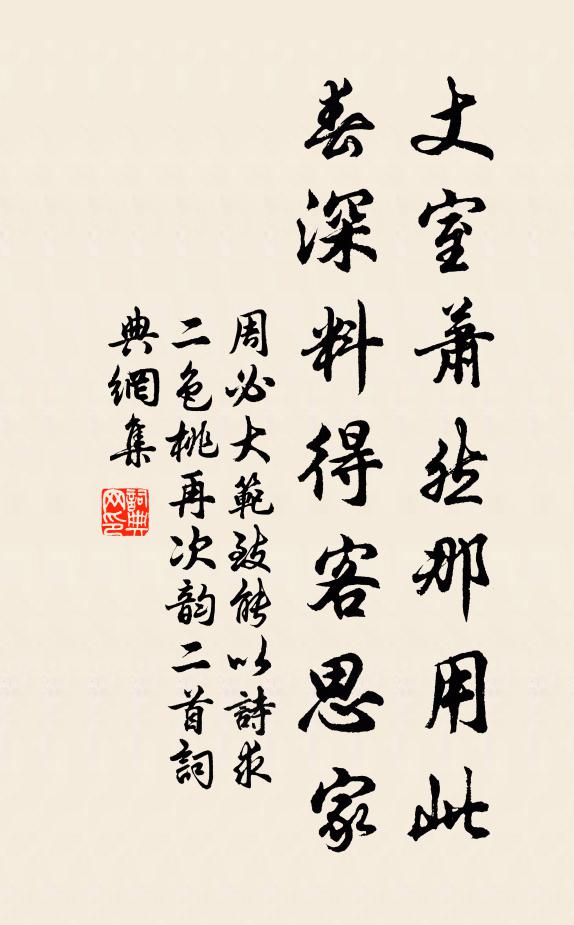 丈室蕭然那用此
春深料得客思家
周必大範致能以詩求
二色桃再次韵二首詞
典網集
詞典网印